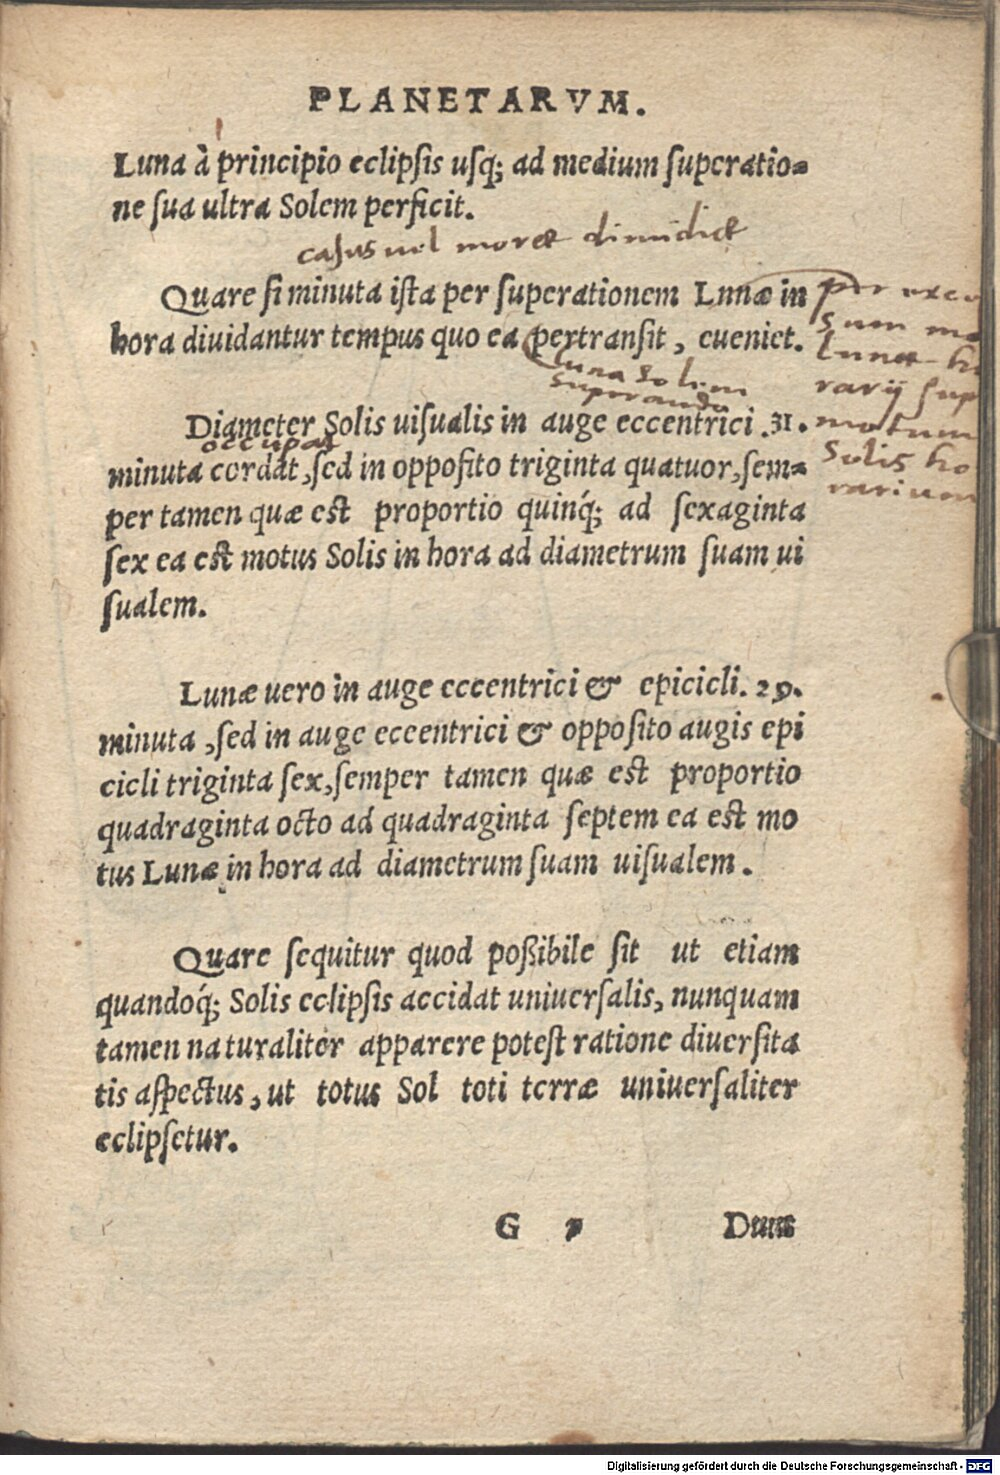 PLANETARVM.
Luna à principio eclipsis usq; ad medium superatio-
ne sua ultra Solem perficit.
casus vel moræ dimidiæ
Quare si minuta ista per superationem Lunæ in
hora diuidantur tempus quo ea pertransit, eueniet.
per exces
sum mo
Lunæ ho
rarij sup
motum
Solis ho
rarium
Luna Solem
superando
Diameter Solis uisualis in auge eccentrici .31.
occupat
minuta cordat, sed in opposito triginta quatuor, sem-
per tamen quæ est proportio quinq́; ad sexaginta
sex ea est motus Solis in hora ad diametrum suam ui
sualem.
Lunæ uero in auge eccentrici & epicicli. 29.
minuta, sed in auge eccentrici & opposito augis epi
cicli triginta sex, semper tamen quæ est proportio
quadraginta octo ad quadraginta septem ea est mo
tus Lunæ in hora ad diametrum suam uisualem.
Quare sequitur quod poßibile sit ut etiam
quandoq́; Solis eclipsis accidat uniuersalis, nunquam
tamen naturaliter apparere potest ratione diuersita
tis aspectus, ut totus Sol toti terræ uniuersaliter
eclipsetur.
G Dum
Digitalisierung gefördert durch die Deutsche Forschungsgemeinschaft - DFG